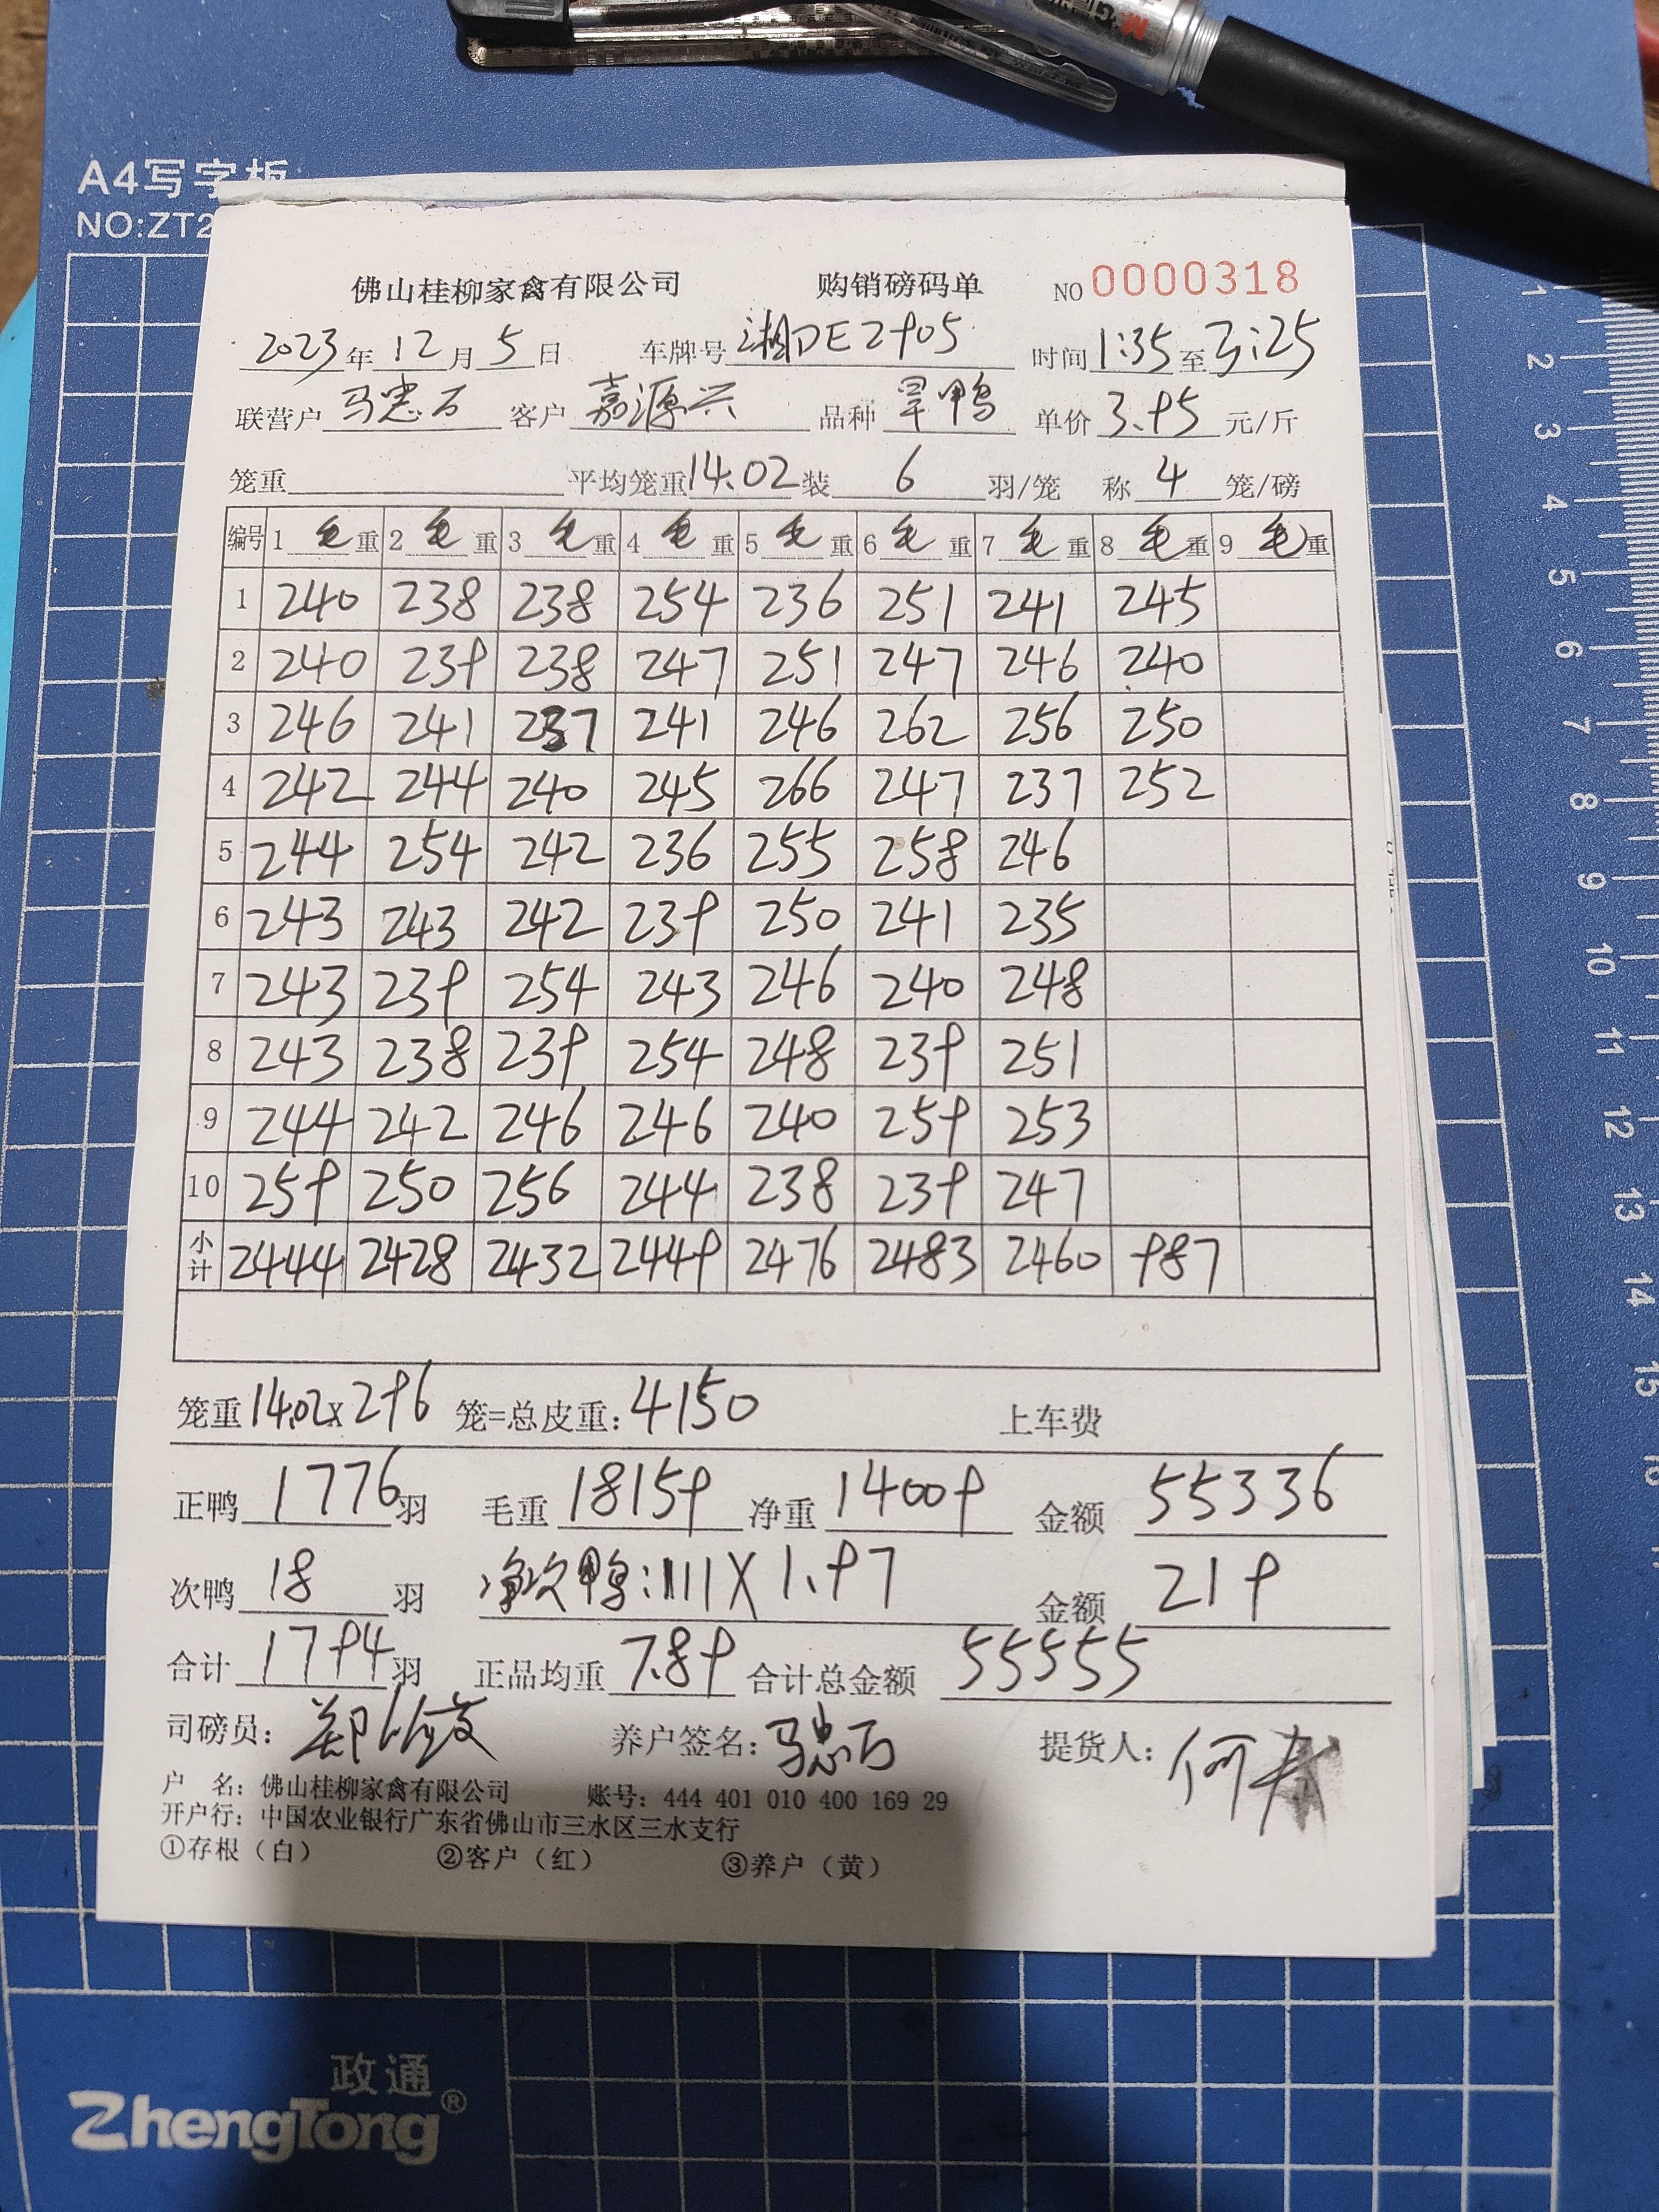 A4写字板
NO:ZT2
佛山桂柳家禽有限公司 购销磅码单 NO 0000318
2023年 12月 5日 车牌号 湘DE2905 时间 1:35 至 3:25
联营户 马忠万 客户 嘉源兴 品种 旱鸭 单价 3.95 元/斤
笼重 平均笼重 14.02 装 6 羽/笼 称 4 笼/磅
编号 1 毛重 2 毛重 3 毛重 4 毛重 5 毛重 6 毛重 7 毛重 8 毛重 9 毛重
1 240 238 238 254 236 251 241 245
2 240 239 238 247 251 247 246 240
3 246 241 237 241 246 262 256 250
4 242 244 240 245 266 247 237 252
5 244 254 242 236 255 258 246
6 243 243 242 239 250 241 235
7 243 239 254 243 246 240 248
8 243 238 239 254 248 239 251
9 244 242 246 246 240 259 253
10 259 250 256 244 238 239 247
小计 2444 2428 2432 2449 2476 2483 2460 987
笼重 14.02 x 296 笼=总皮重: 4150 上车费
正鸭 1776 羽 毛重 18159 净重 14009 金额 55336
次鸭 18 羽 净次鸭:111 X 1.97 金额 219
合计 1794 羽 正品均重 7.89 合计总金额 55555
司磅员: 郑 养户签名: 马忠万 提货人: 何
户 名: 佛山桂柳家禽有限公司 账号: 444 401 010 400 169 29
开户行: 中国农业银行广东省佛山市三水区三水支行
①存根（白） ②客户（红） ③养户（黄）
政通
ZhengTong®
1
2
3
4
5
6
7
8
9
10
11
12
13
14
15